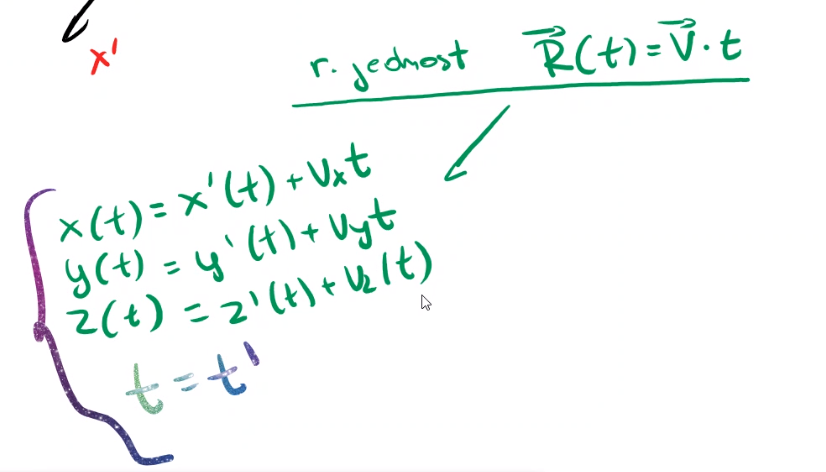 x'
r. jednost R⃗(t) = V⃗ · t
x(t) = x'(t) + Vxt
y(t) = y'(t) + Vyt
z(t) = z'(t) + Vz(t)
t = t'